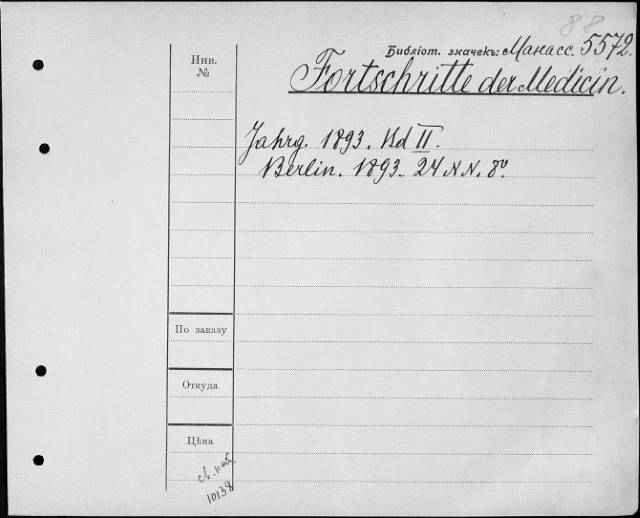 88
Библіот. значекъ: Манасс. 5572.
Инв.
№
Fortschritte der Medicin.
Jahrg. 1893. Bd II.
Berlin. 1893. 24 N.N. 8º.
По заказу
Откуда
Цѣна
св. кат.
10138